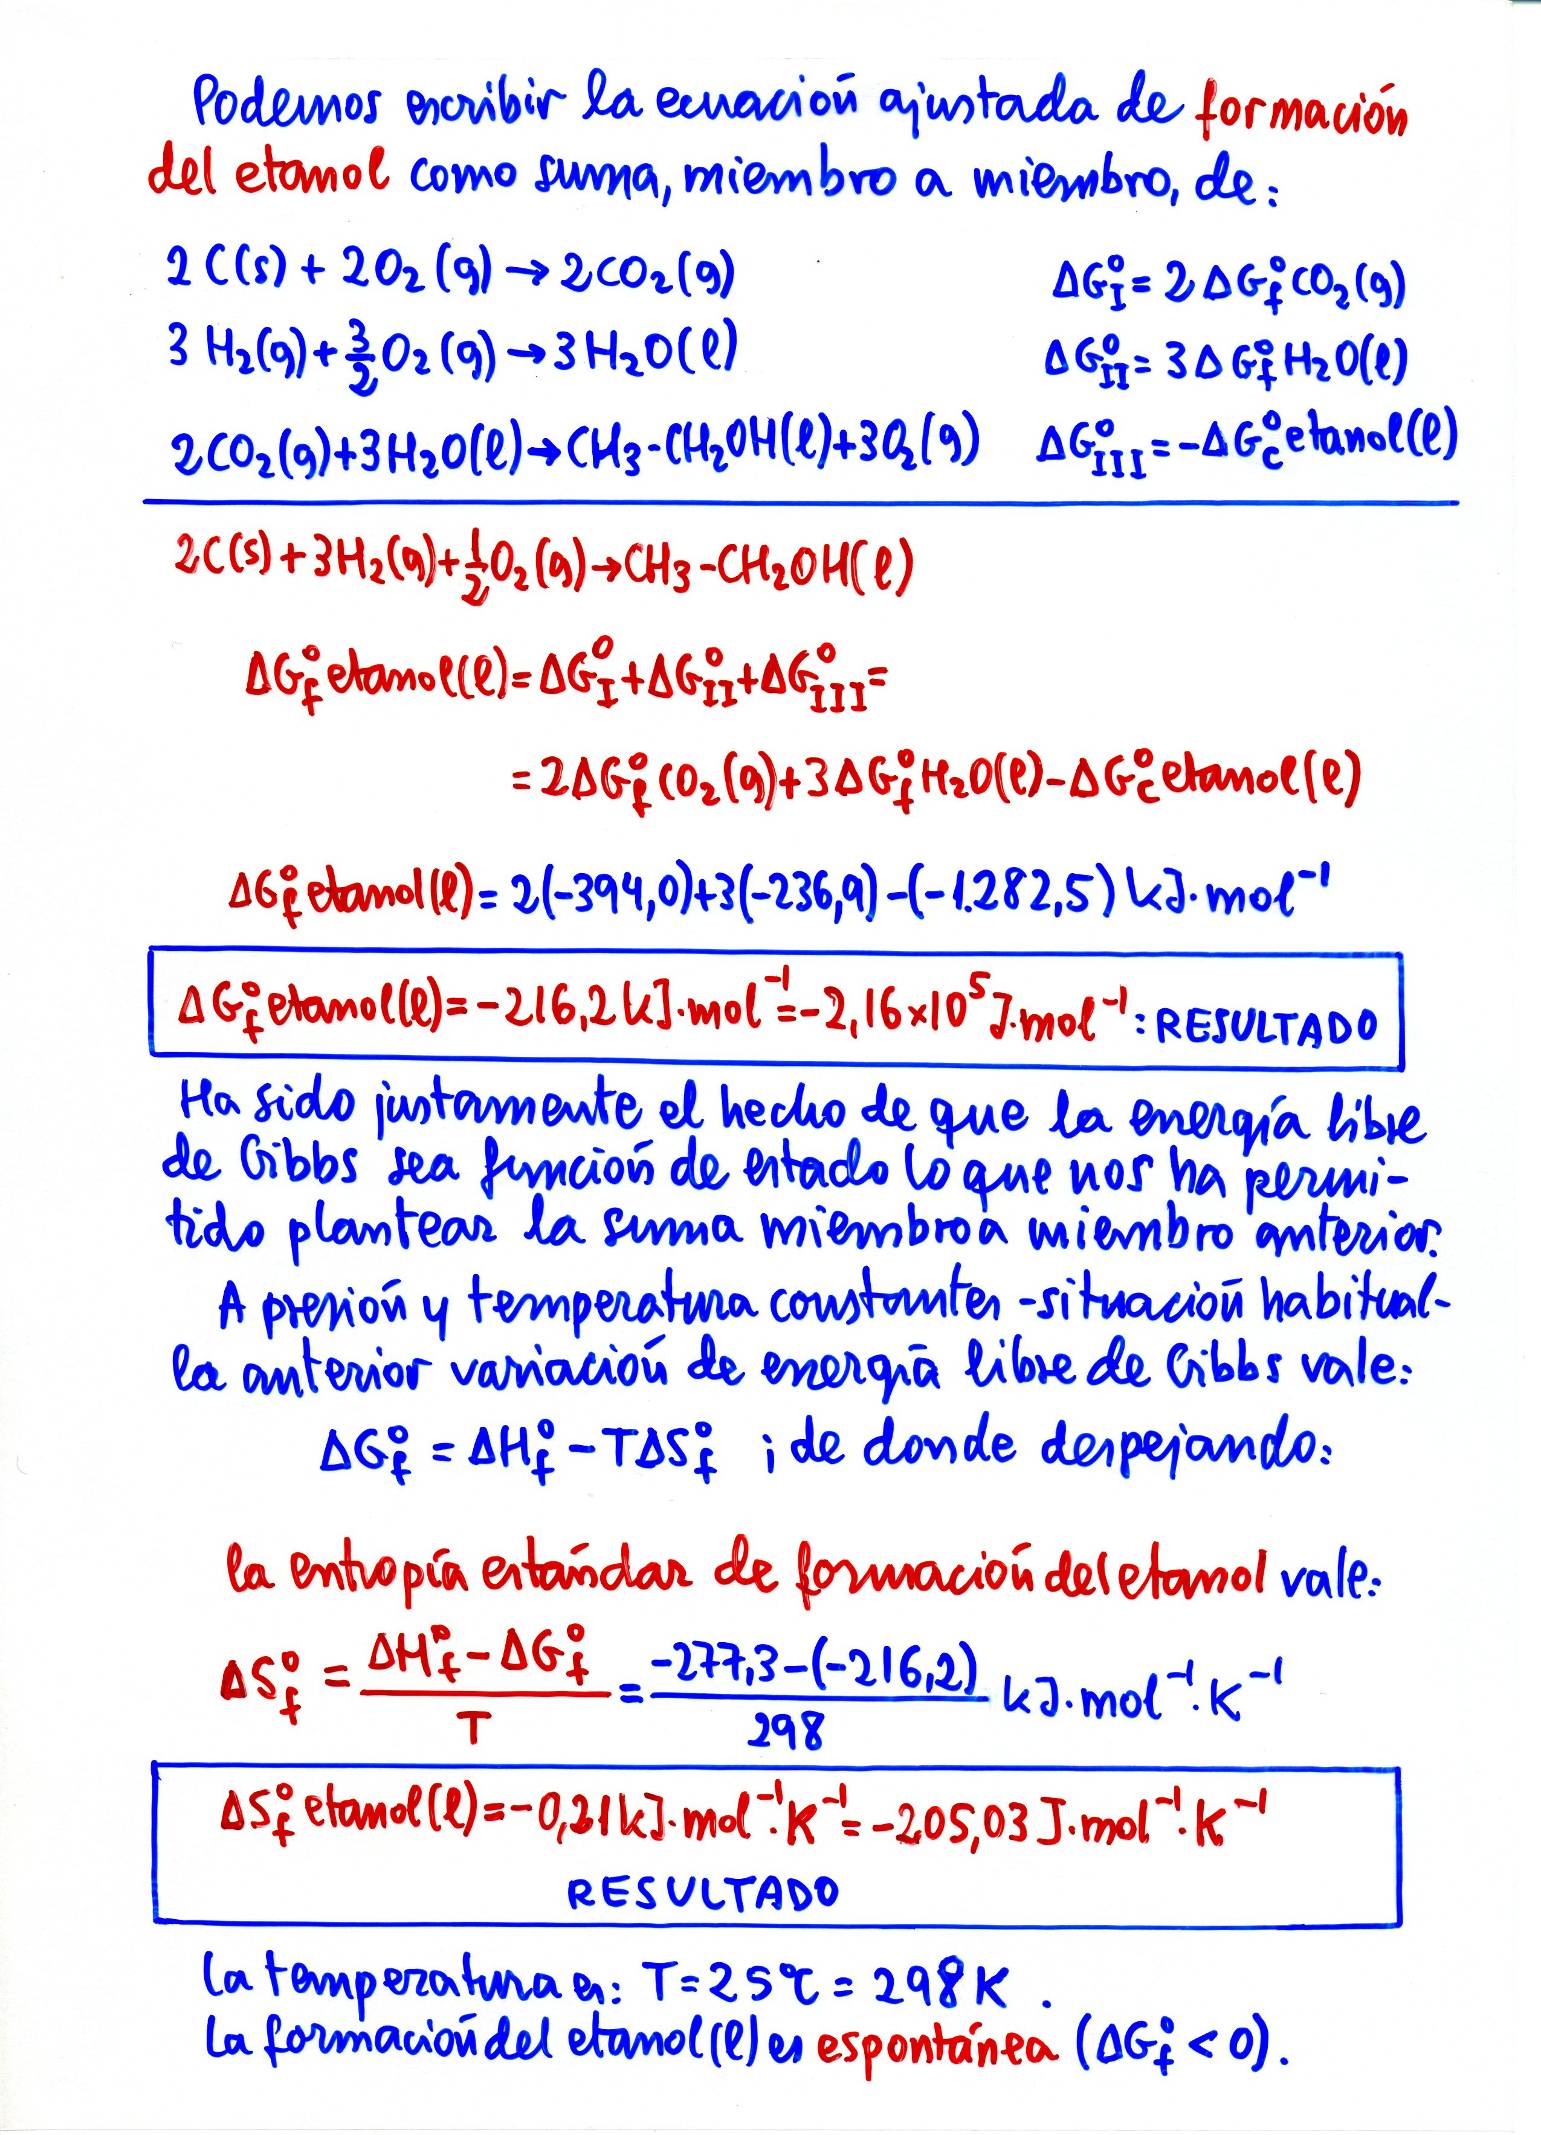 Podemos escribir la ecuación ajustada de formación
del etanol como suma, miembro a miembro, de:
2 C(s) + 2O₂ (g) → 2CO₂ (g) ΔG°I = 2 ΔG°f CO₂ (g)
3 H₂(g) + 3/2 O₂ (g) → 3 H₂O (l) ΔG°II = 3 Δ G°f H₂O(l)
2CO₂(g)+3H₂O(l) → CH₃-CH₂OH(l)+3O₂(g) ΔG°III = -ΔG°c etanol(l)
2C(s) + 3H₂(g) + 1/2 O₂ (g) → CH₃-CH₂OH(l)
ΔG°f etanol(l) = ΔG°I + ΔG°II + ΔG°III =
= 2ΔG°f CO₂ (g) + 3ΔG°f H₂O(l) - ΔG°c etanol(l)
ΔG°f etanol(l) = 2(-394,0)+3(-236,9)-(-1.282,5) kJ·mol⁻¹
ΔG°f etanol(l) = -216,2 kJ·mol⁻¹ = -2,16×10⁵ J·mol⁻¹ : RESULTADO
Ha sido justamente el hecho de que la energía libre
de Gibbs sea función de estado lo que nos ha permi-
tido plantear la suma miembro a miembro anterior.
A presión y temperatura constantes -situación habitual-
la anterior variación de energía libre de Gibbs vale:
ΔG°f = ΔH°f - TΔS°f ; de donde despejando:
la entropía estándar de formación del etanol vale:
ΔS°f = (ΔH°f - ΔG°f)/T = (-277,3-(-216,2))/298 kJ·mol⁻¹·K⁻¹
ΔS°f etanol(l) = -0,21 kJ·mol⁻¹·K⁻¹ = -205,03 J·mol⁻¹·K⁻¹
RESULTADO
La temperatura es: T = 25 °C = 298 K.
La formación del etanol(l) es espontánea (ΔG°f < 0).